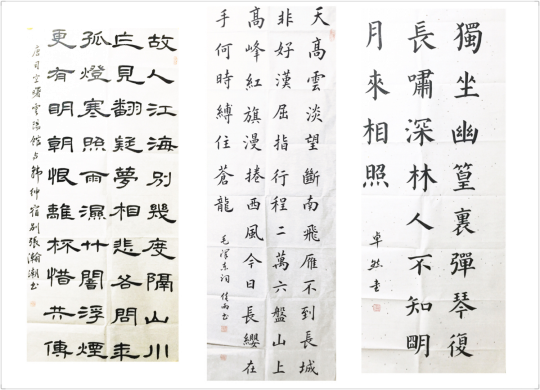 故人江海別幾度隔山川
乍見翻疑夢相悲各問年
孤燈寒照雨濕竹闇浮煙
更有明朝恨離杯惜共傳
唐司空曙雲陽館与韩绅宿别張瀚潮书
天高雲淡望斷南飛雁不到長城
非好漢屈指行程二萬六盤山上
高峰紅旗漫捲西風今日長纓在
手何時縛住蒼龍
毛澤東詞
獨坐幽篁裏彈琴復
長嘯深林人不知明
月來相照
卓然書